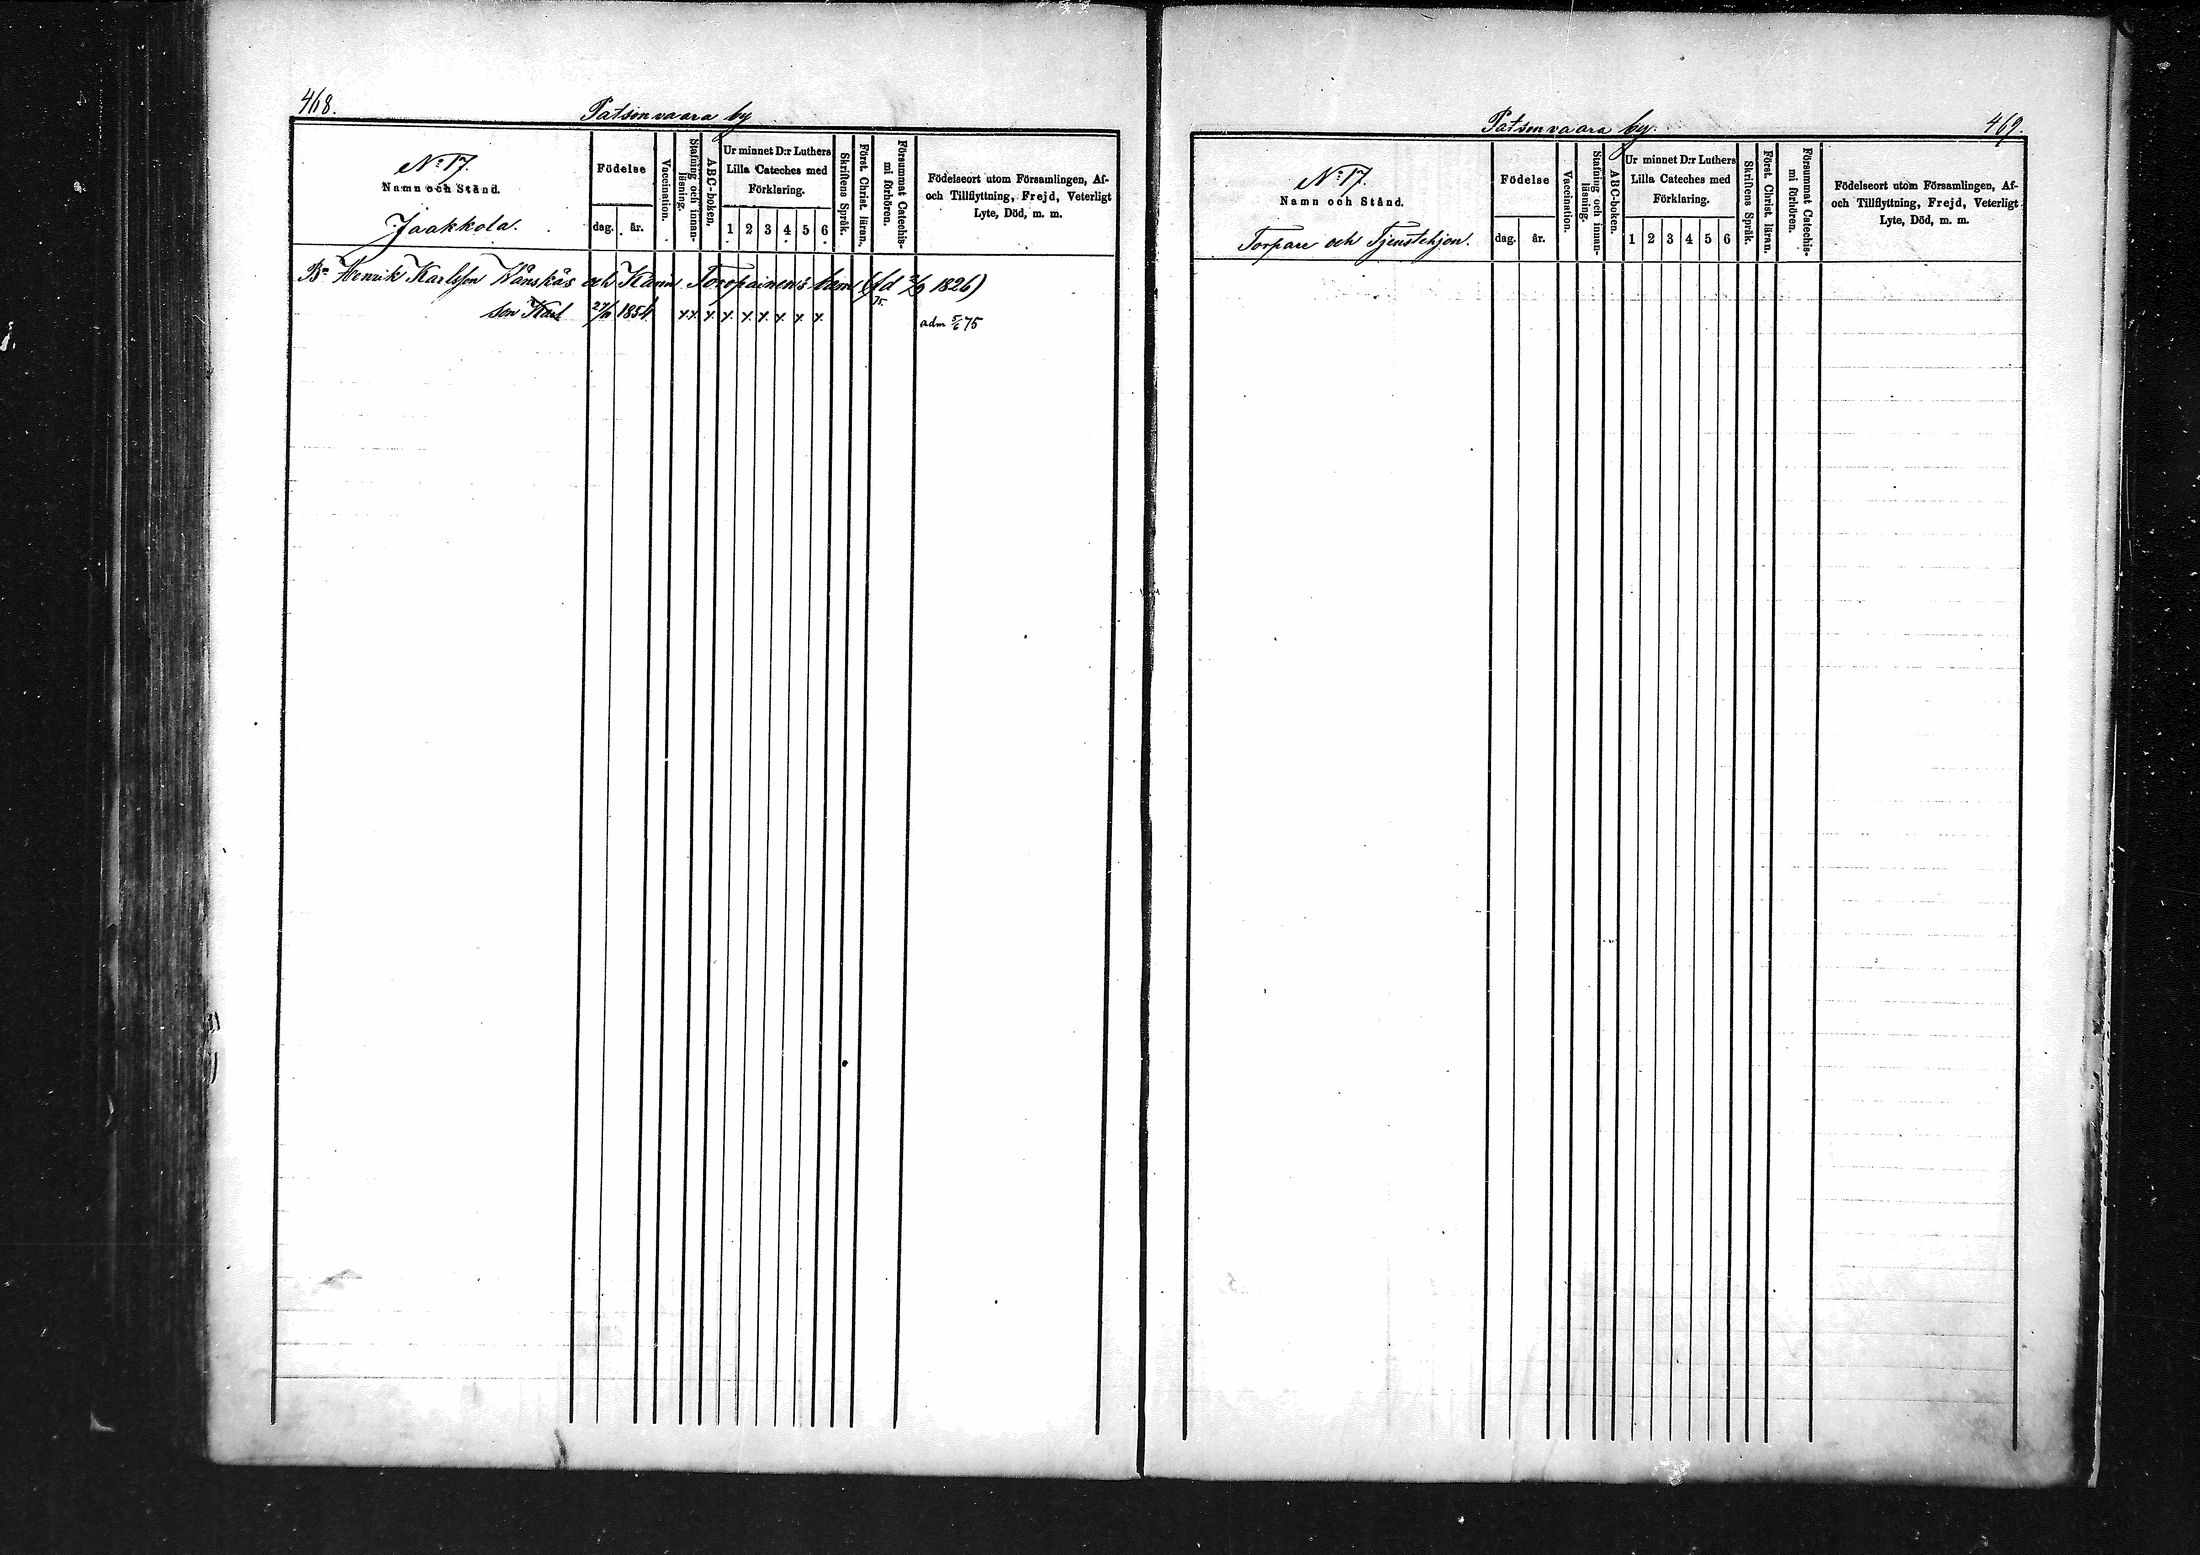 468.
Patsonvaara by
No 17.
Namn och Stånd.
Jaakkola.
Födelse
dag.
år.
Vaccination.
Stafning och innan-
läsning.
ABC-boken.
Ur minnet D:r Luthers
Lilla Cateches med
Förklaring.
1 2 3 4 5 6
Skriftens Språk.
Först. Christ. läran.
Försummat Catechis-
mi förhören.
Födelseort utom Församlingen, Af-
och Tillflyttning, Frejd, Veterligt
Lyte, Död, m. m.
Bn Henrik Karlsson Känskäs och Karin Toropainens barn (fd 1826)
75.
son Karl 1854 x x x x x x x x x adm 5/6 75
Patsonvaara by.
469.
No 17.
Namn och Stånd.
Torpare och Tjenstehjon.
Födelse
dag.
år.
Vaccination.
Stafning och innan-
läsning.
ABC-boken.
Ur minnet D:r Luthers
Lilla Cateches med
Förklaring.
1 2 3 4 5 6
Skriftens Språk.
Först. Christ. läran.
Försummat Catechis-
mi förhören.
Födelseort utom Församlingen, Af-
och Tillflyttning, Frejd, Veterligt
Lyte, Död, m. m.